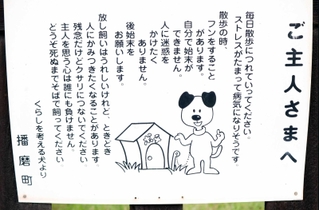 ご主人さまへ
毎日散歩につれていってください。
ストレスがたまって病気になりそうです。
散歩の時、
フンをすること
があります。
自分で始末が
できません。
人に迷惑を
かけたく
ありません。
後始末を
お願いします。
放し飼いはうれしいけれど、ときどき
人にかみつきたくなることがあります。
残念だけどクサリにつないでください。
主人を思う心は誰にも負けません。
どうぞ死ぬまでそばで飼ってください。
くらしを考える犬より
播磨町